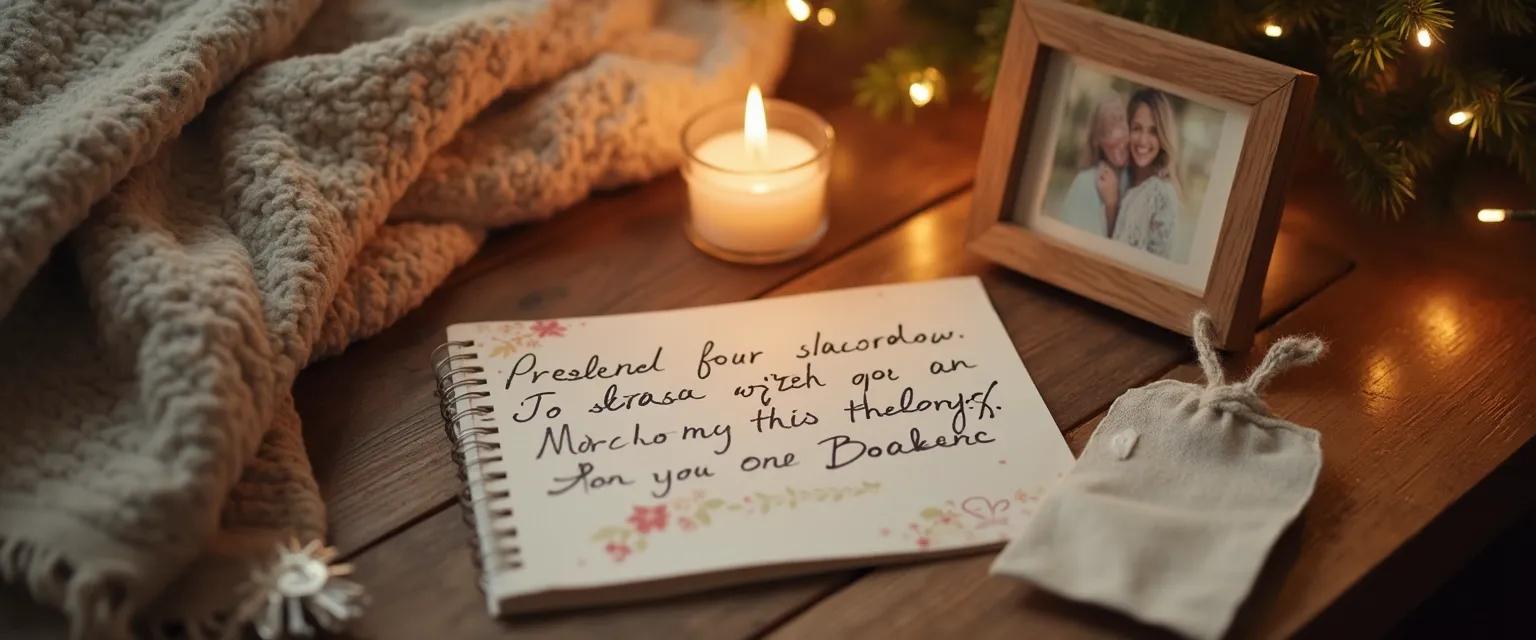 Preslend four slacordow.
To strasa witch goe an
Morcho my this thelorys.
for you one Boakenc